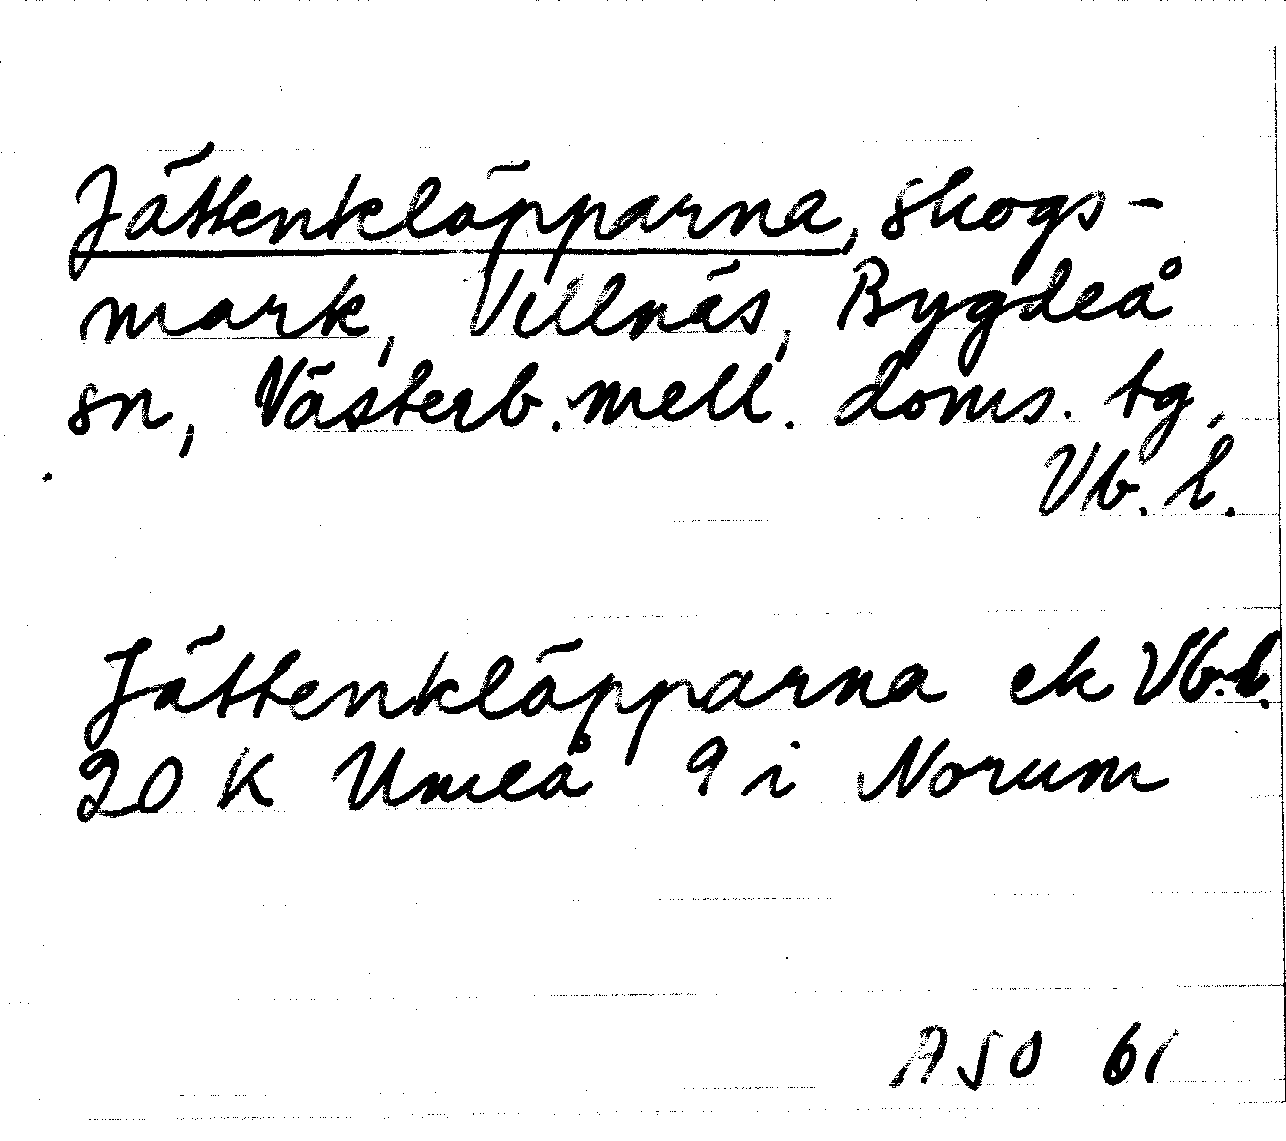 Jättenkläpparna, skogs-
mark, Villnäs, Bygdeå
sn, Västerb. mell. doms. tg,
Vb. l.
Jättenkläpparna ek Vb. l.
20 K Umeå 9 i Norum
ASO 61